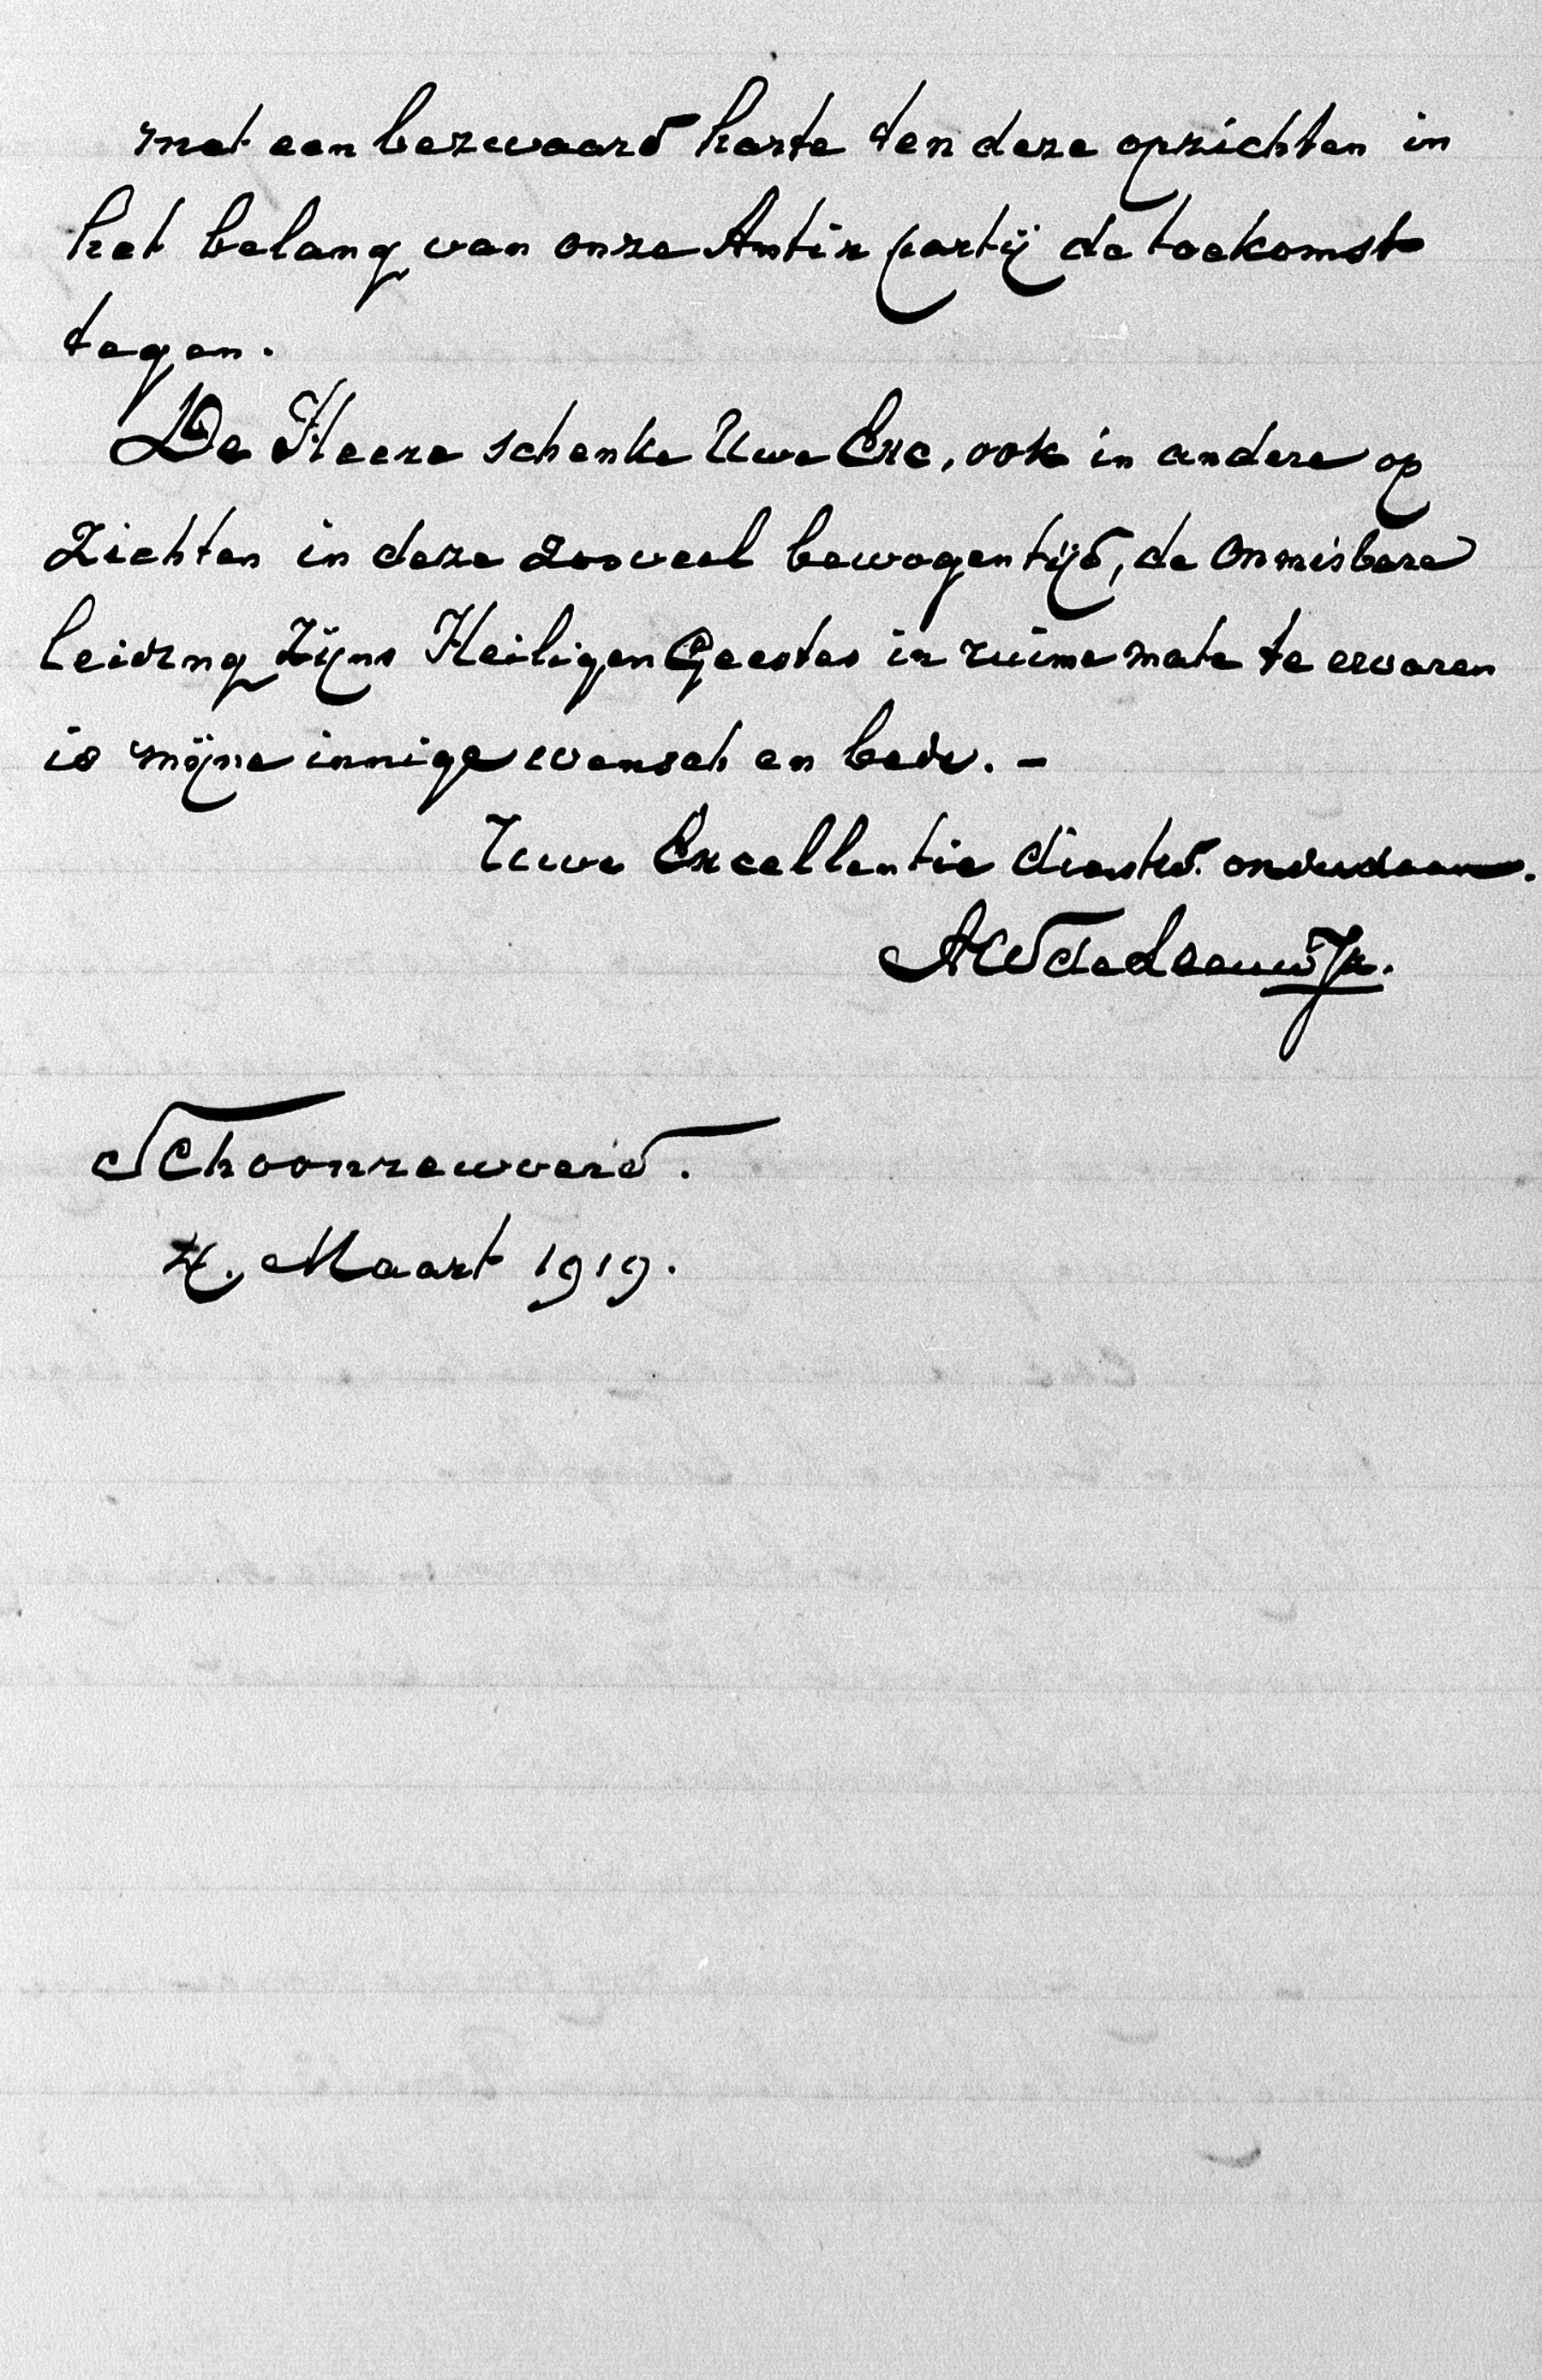 met een bezwaard harte ten deze opzichten in
het belang van onze Antir partij de toekomst
tegen.
De Heere schenke Uwe Exc, ook in andere op
zichten in deze zooveel bewogen tijd, de onmisbare
leiding Zijns Heiligen Geestes in ruime mate te ervaren
is mijne innige wensch en bede. -
Uwe Excellentie dienstw. onderdaan.
AW de Leeuw Jr.
Schoonrewoerd.
4. Maart 1919.